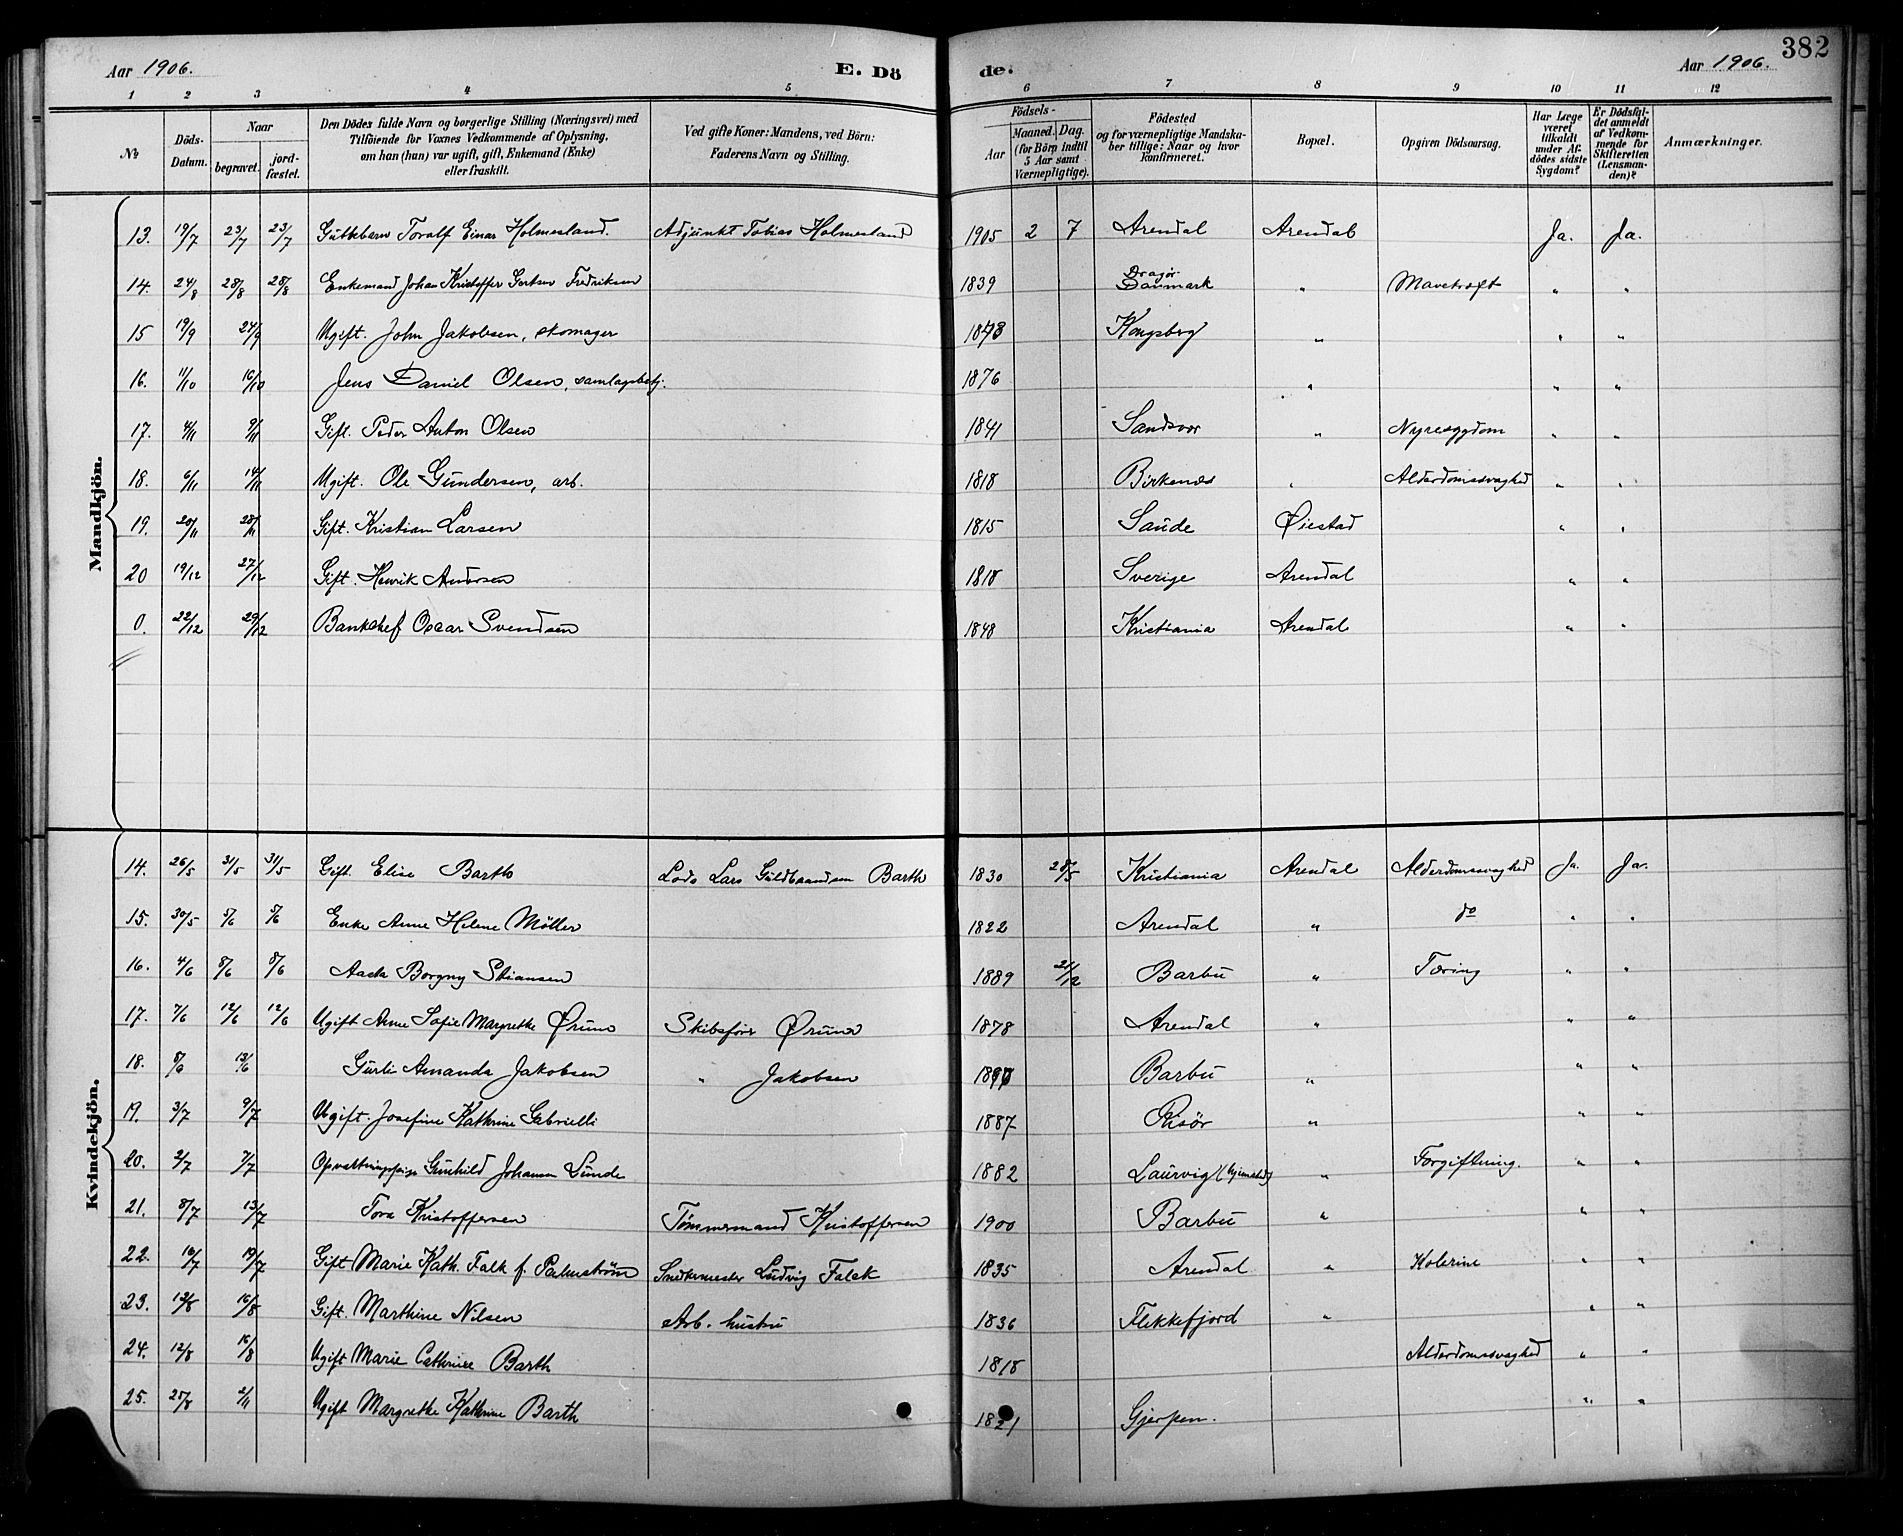 382
Aar 1906. E. Dö de. Aar 1906.
1 2 3 4 5 6 7 8 9 10 11 12
No
Döds-Datum.
Naar
begravet.
jord-fæstet.
Den Dödes fulde Navn og borgerlige Stilling (Næringsvei) med
Tilföiende for Voxnes Vedkommende af Oplysning,
om han (hun) var ugift, gift, Enkemand (Enke)
eller fraskilt.
Ved gifte Koner: Mandens, ved Börn:
Faderens Navn og Stilling.
Födsels-
Aar
Maaned. Dag.
(for Börn indtil
5 Aar samt
Værnepligtige).
Födested
og for værnepligtige Mandska-
ber tillige: Naar og hvor
konfirmeret.
Bopæl.
Opgiven Dödsaarsag.
Har Læge
været
tilkaldt
under Af-
dödes sidste
Sygdom?
Er Dödsfal-
det anmeldt
af Vedkom-
mende for
Skifteretten
(Lensman-
den)?
Anmærkninger.
Mandkjön.
13. 19/7 23/7 23/7 Guttebarn Toralf Einar Holmesland. Adjunkt Tobias Holmesland 1905 2 7 Arendal Arendal Ja. Ja.
14. 24/8 28/8 28/8 Enkemand Johan Kristoffer Gertsen Fredriksen 1839 Dragör Danmark " Mavekræft " "
15 19/9 24/9 Ugift. John Jakobsen, skomager 1848 Kongsberg " " "
16. 11/10 16/10 Jens Daniel Olsen, samlagsbetj. 1876 " " "
17. 4/11 9/11 Gift. Peder Anton Olsen 1841 Sandsvær " Nyresygdom " "
18. 6/11 14/11 Ugift. Ole Gundersen, arb. 1818 Birkenæs " Alderdomssvaghed " "
19. 20/11 28/11 Gift. Kristian Larsen 1815 Saude Øiestad " "
20 19/12 27/12 Gift. Henrik Andersen 1818 Sverige Arendal " "
0. 22/12 29/12 Bankchef Oscar Svendsen 1848 Kristiania Arendal " "
Kvindekjön.
14. 26/5 31/5 31/5 Gift Elise Barth Lods Lars Guldbrandsen Barth 1830 28/5 Kristiania Arendal Alderdomssvaghed Ja. Ja.
15. 30/5 5/6 5/6 Enke Anne Helene Møller 1822 Arendal " do " "
16. 4/6 8/6 8/6 Aasta Borgny Stiansen 1889 21/12 Barbu " Tæring " "
17. 7/6 12/6 12/6 Ugift Anne Sofie Margrethe Ørum Skibsfører Ørum 1878 Arendal " " "
18. 8/6 13/6 Gurli Amanda Jakobsen " Jakobsen Barbu " " "
19. 3/7 9/7 Ugift. Josefine Kathrine Gabrielli 1887 Risör " " "
20. 2/7 7/7 Opvartningspige Gunhild Johanna Lunde 1882 Laurvig (hjemsted) " Forgiftning. " "
21. 8/7 13/7 Tora Kristoffersen Tømmermand Kristoffersen 1900 Barbu " " "
22. 16/7 19/7 Gift Marie Kath. Falk f. Palmstrøm Snedkermester Ludvig Falck 1835 Arendal " Kolerine " "
23. 13/8 16/8 Gift. Marthine Nilsen Arb. hustru 1836 Flekkefjord " " "
24. 12/8 16/8 Ugift Marie Cathrine Barth 1818 Alderdomssvaghed " "
25. 25/8 2/11 Ugift Margrethe Kathrine Barth 1821 Gjerpen. " "